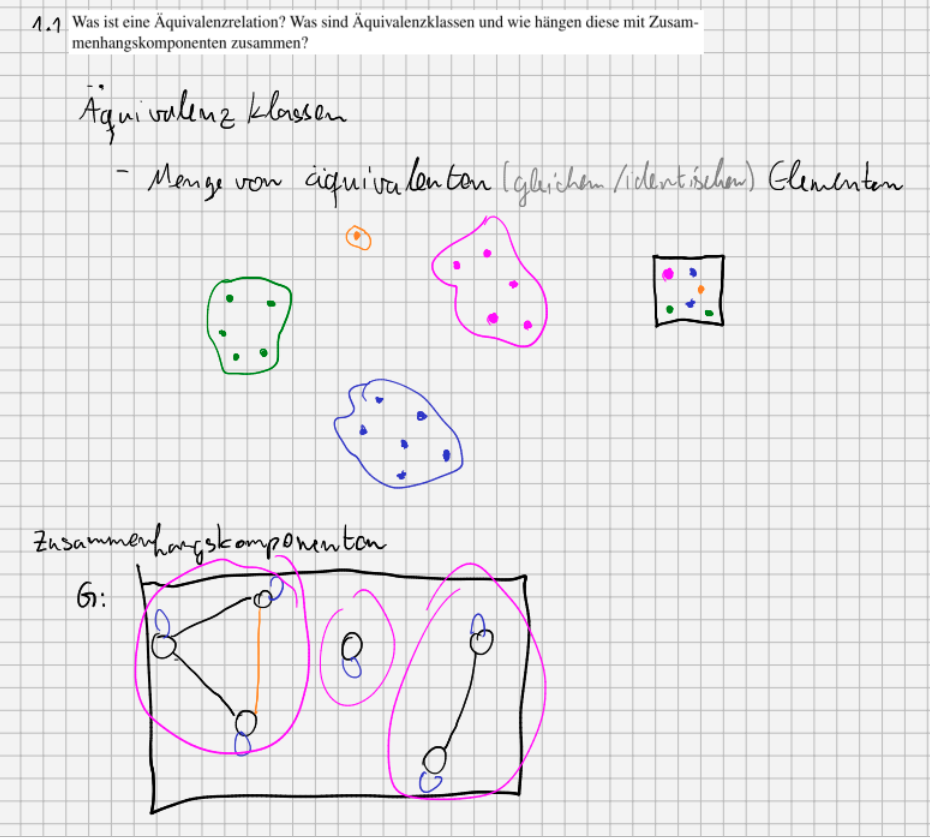 1.1 Was ist eine Äquivalenzrelation? Was sind Äquivalenzklassen und wie hängen diese mit Zusam-
menhangskomponenten zusammen?
Äquivalenz klassen
- Menge von äquivalenten (gleichen/identischen) Elementen
Zusammenhangskomponenten
G: